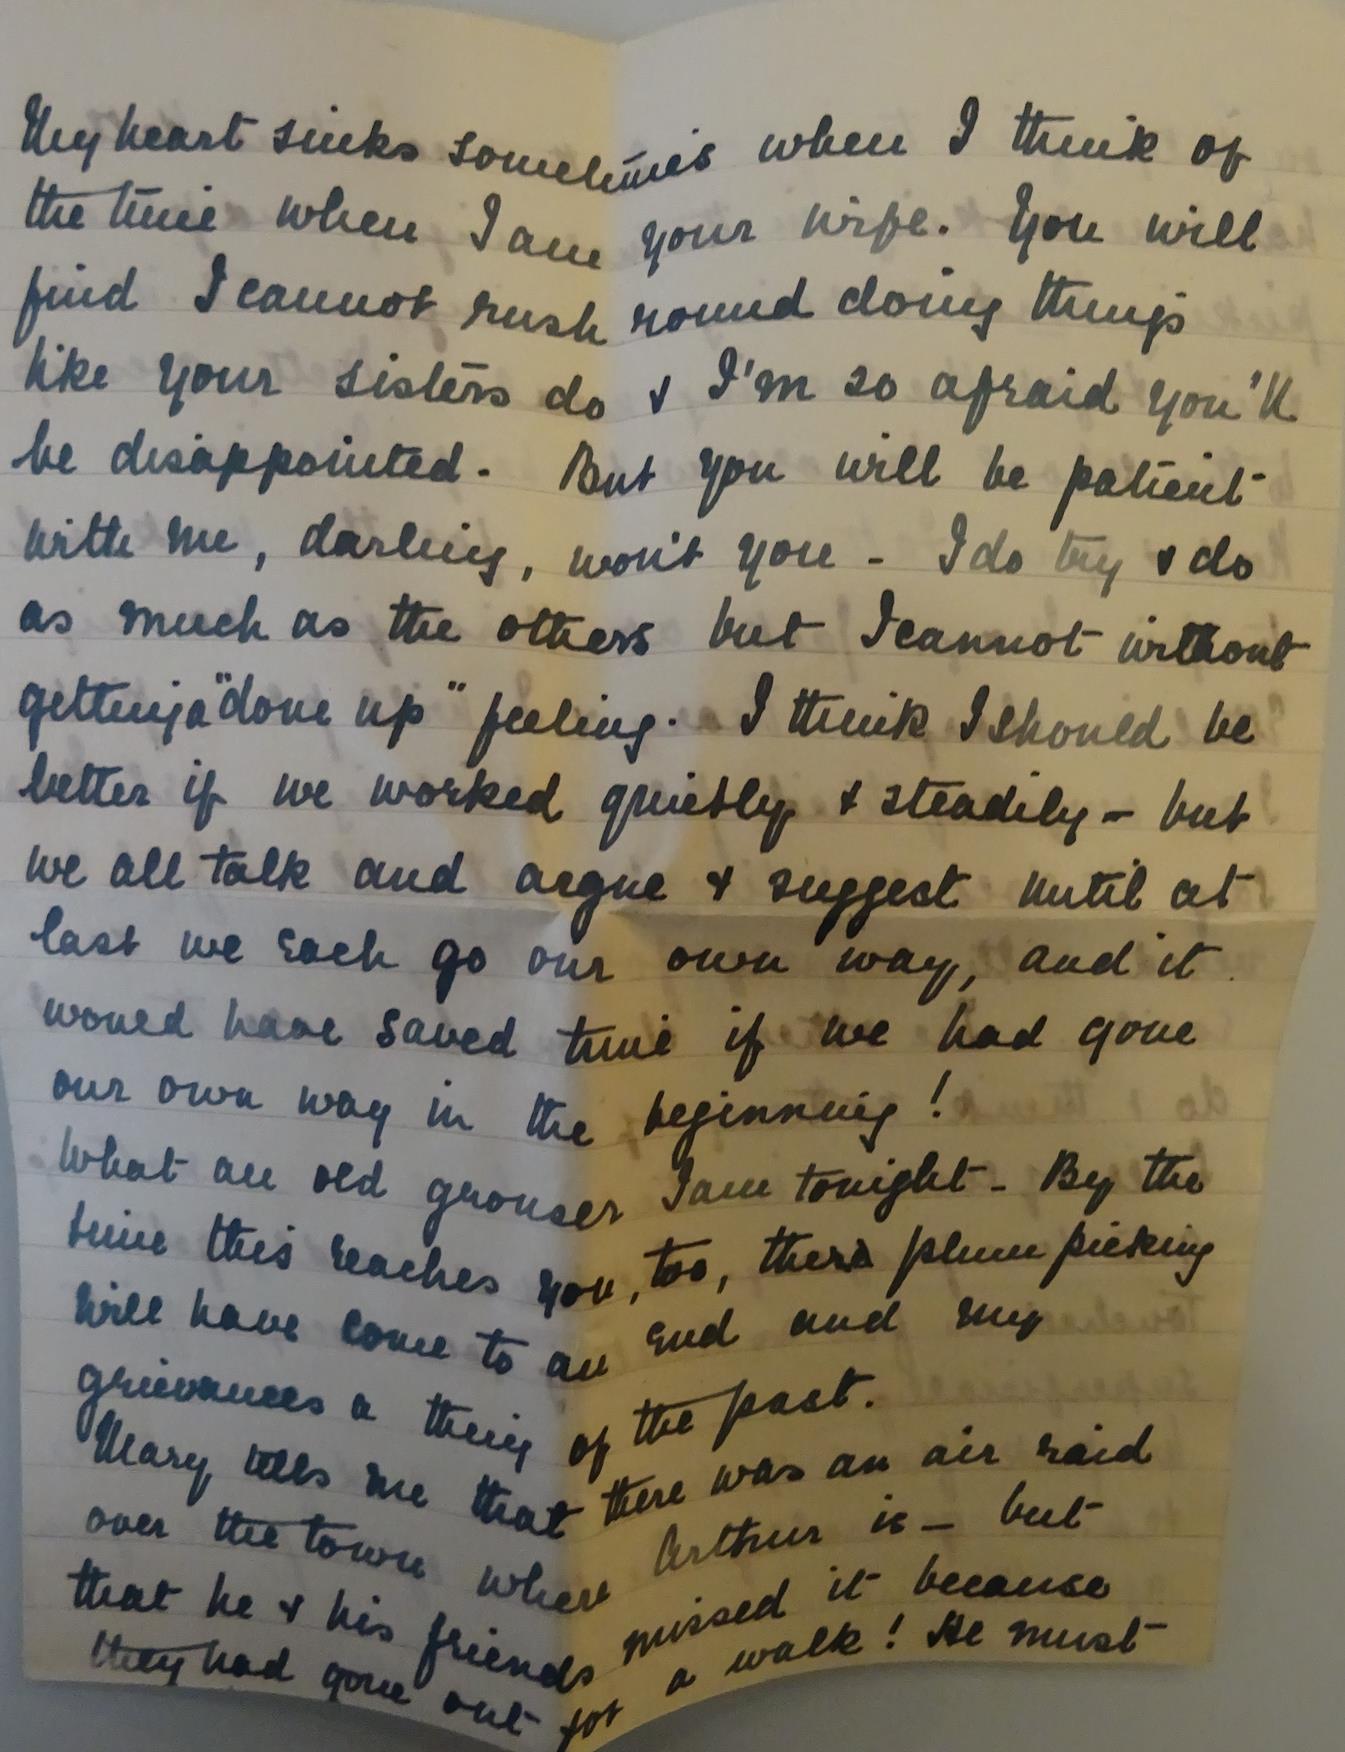 My heart sinks sometimes when I think of
the time when I am your wife. You will
find I cannot rush round doing things
like your sisters do & I'm so afraid you'll
be disappointed. But you will be patient
with me, darling, won't you - I do try & do
as much as the others but I cannot without
getting a "done up" feeling. I think I should be
better if we worked quietly & steadily - but
we all talk and argue & suggest until at
last we each go our own way, and it
would have saved time if we had gone
our own way in the beginning!
What an old grouser I am tonight - By the
time this reaches you, too, plum picking
will have come to an end and my
grievances a thing of the past.
Mary tells me that there was an air raid
over the town where Arthur is - but
that he & his friends missed it because
they had gone out for a walk! He must